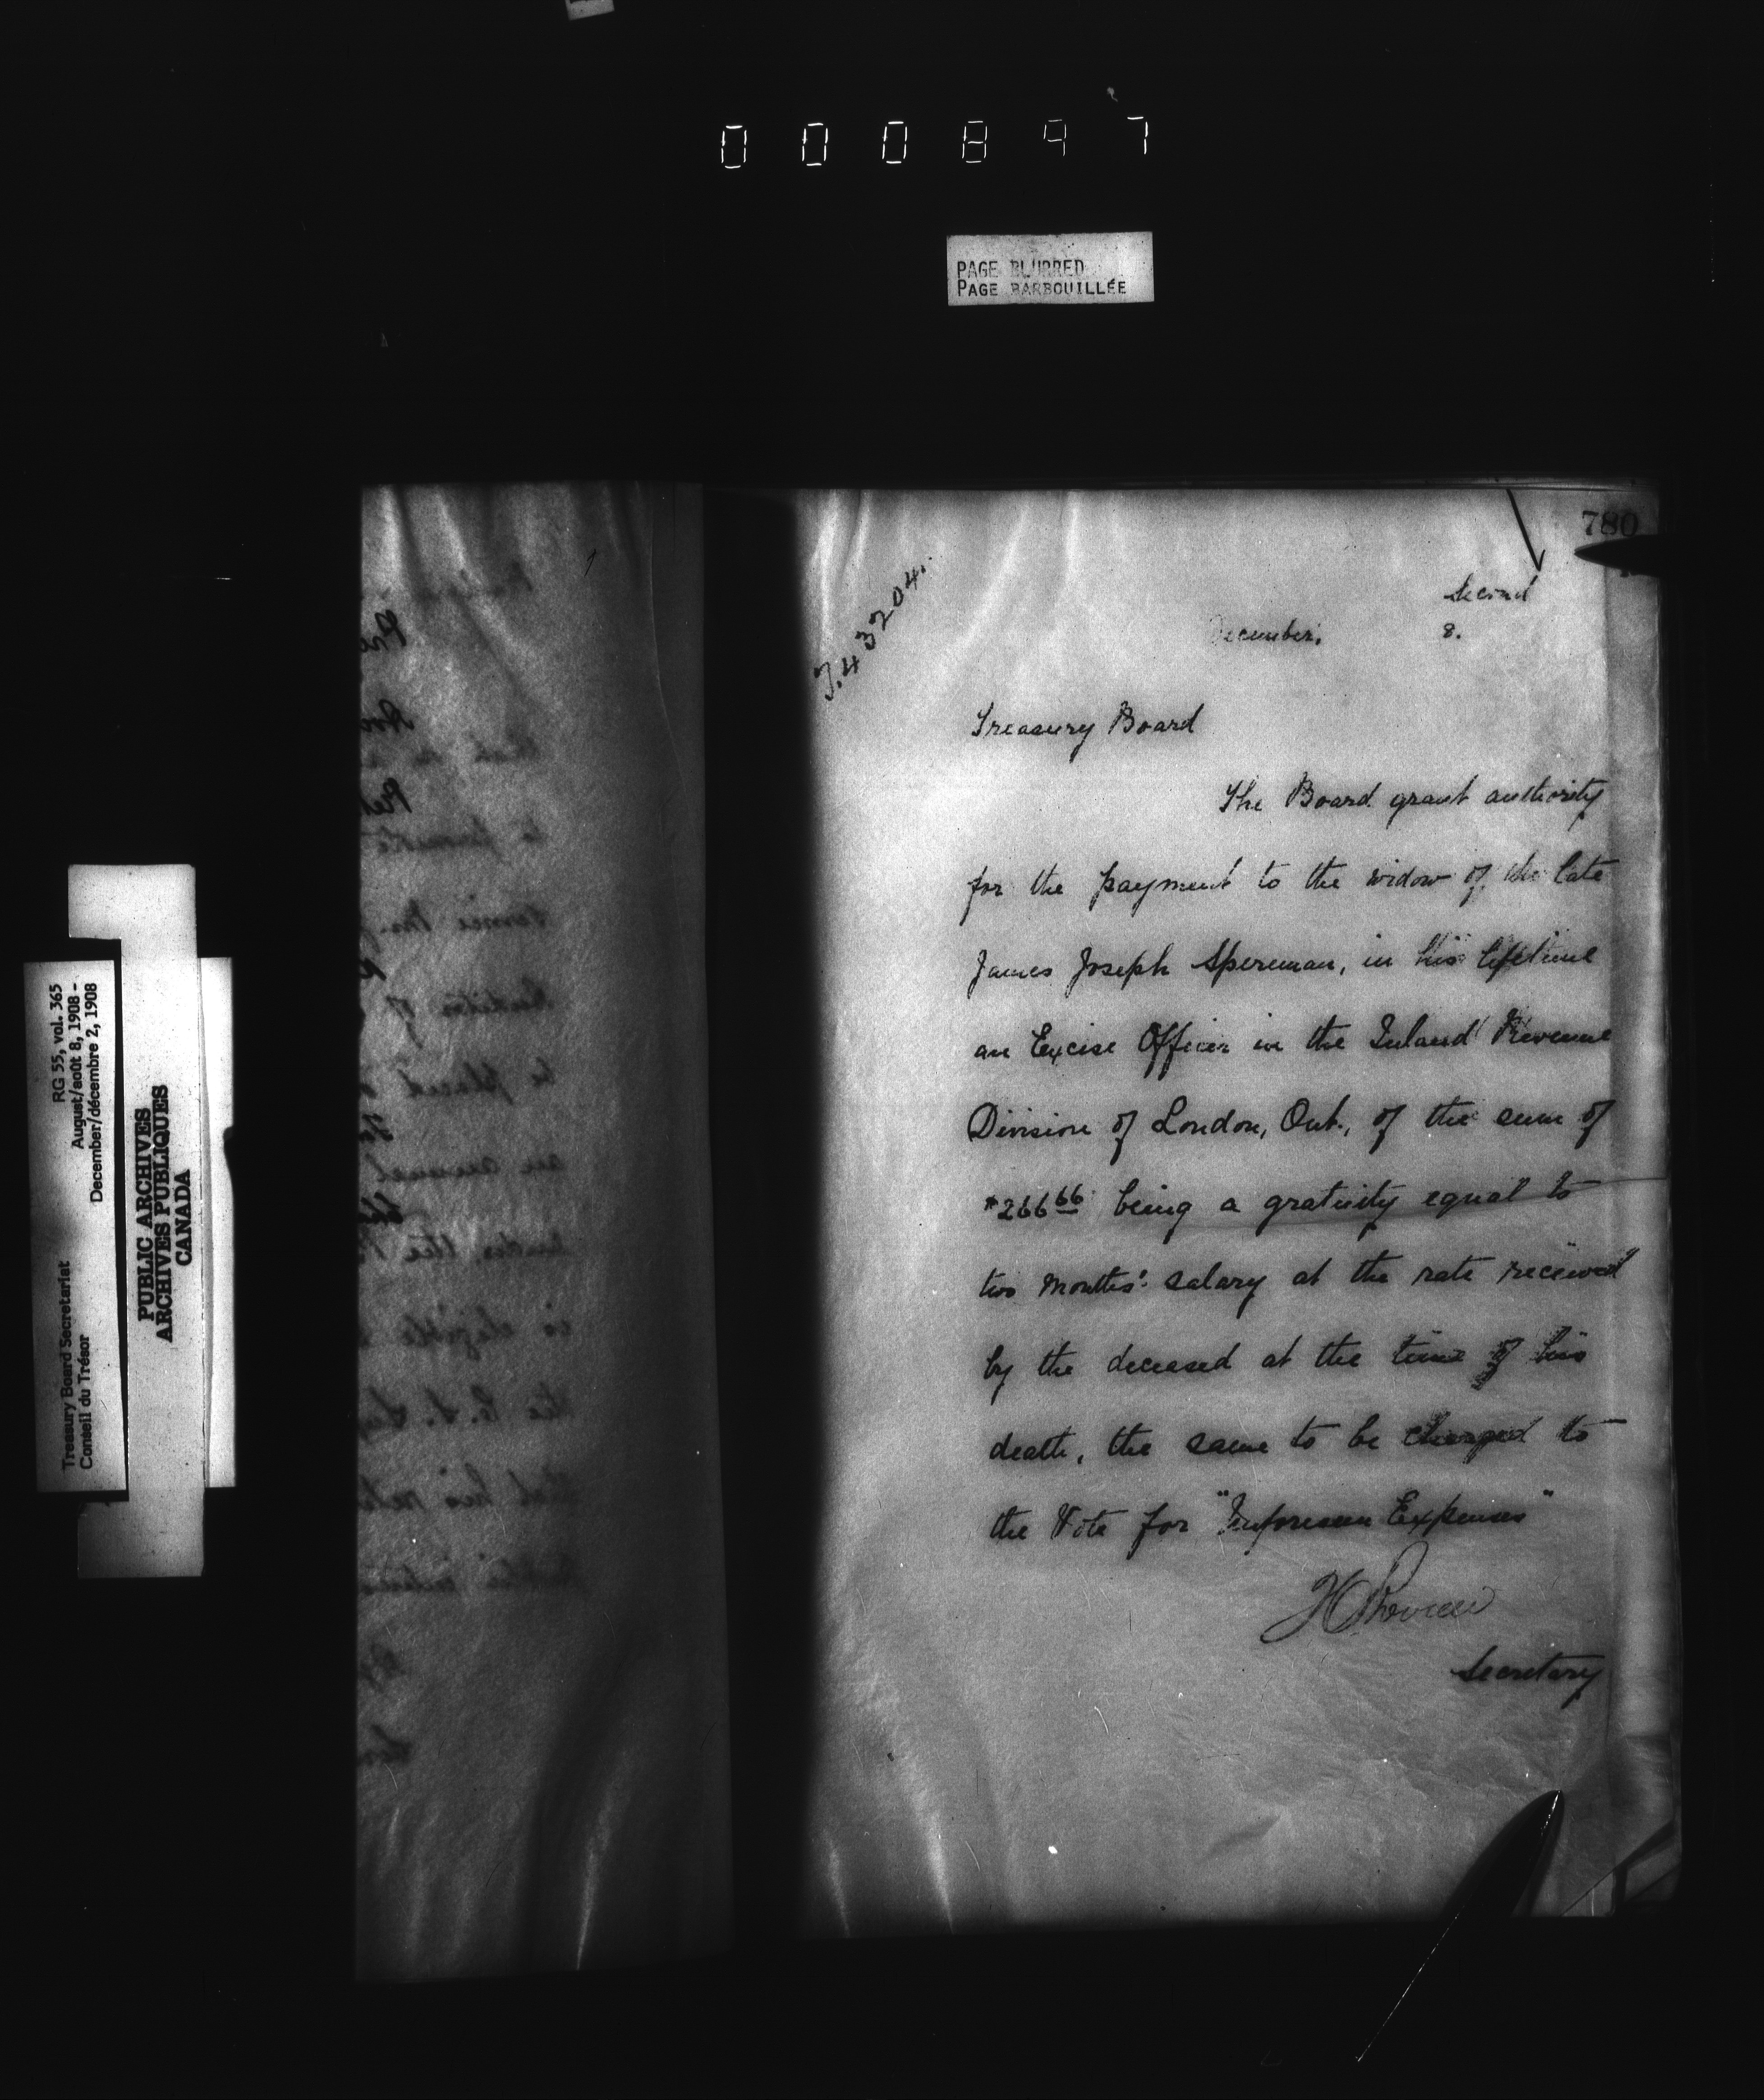 0 0 0 8 4 7
PAGE BLURRED
PAGE BARBOUILLÉE
780
7.43204.
Second
December, 8.
Treasury Board
The Board grant authority
for the payment to the widow of the late
James Joseph Spereman, in his lifetime
an Excise Officer in the Inland Revenue
Division of London, Ont., of the sum of
$266 66 being a gratuity equal to
two months' salary at the rate received
by the deceased at the time of his
death, the same to be charged to
the Vote for "Unforeseen Expenses"
Secretary
Treasury Board Secretariat
Conseil du Trésor
RG 55, vol. 365
August/août 8, 1908 -
December/décembre 2, 1908
PUBLIC ARCHIVES
ARCHIVES PUBLIQUES
CANADA